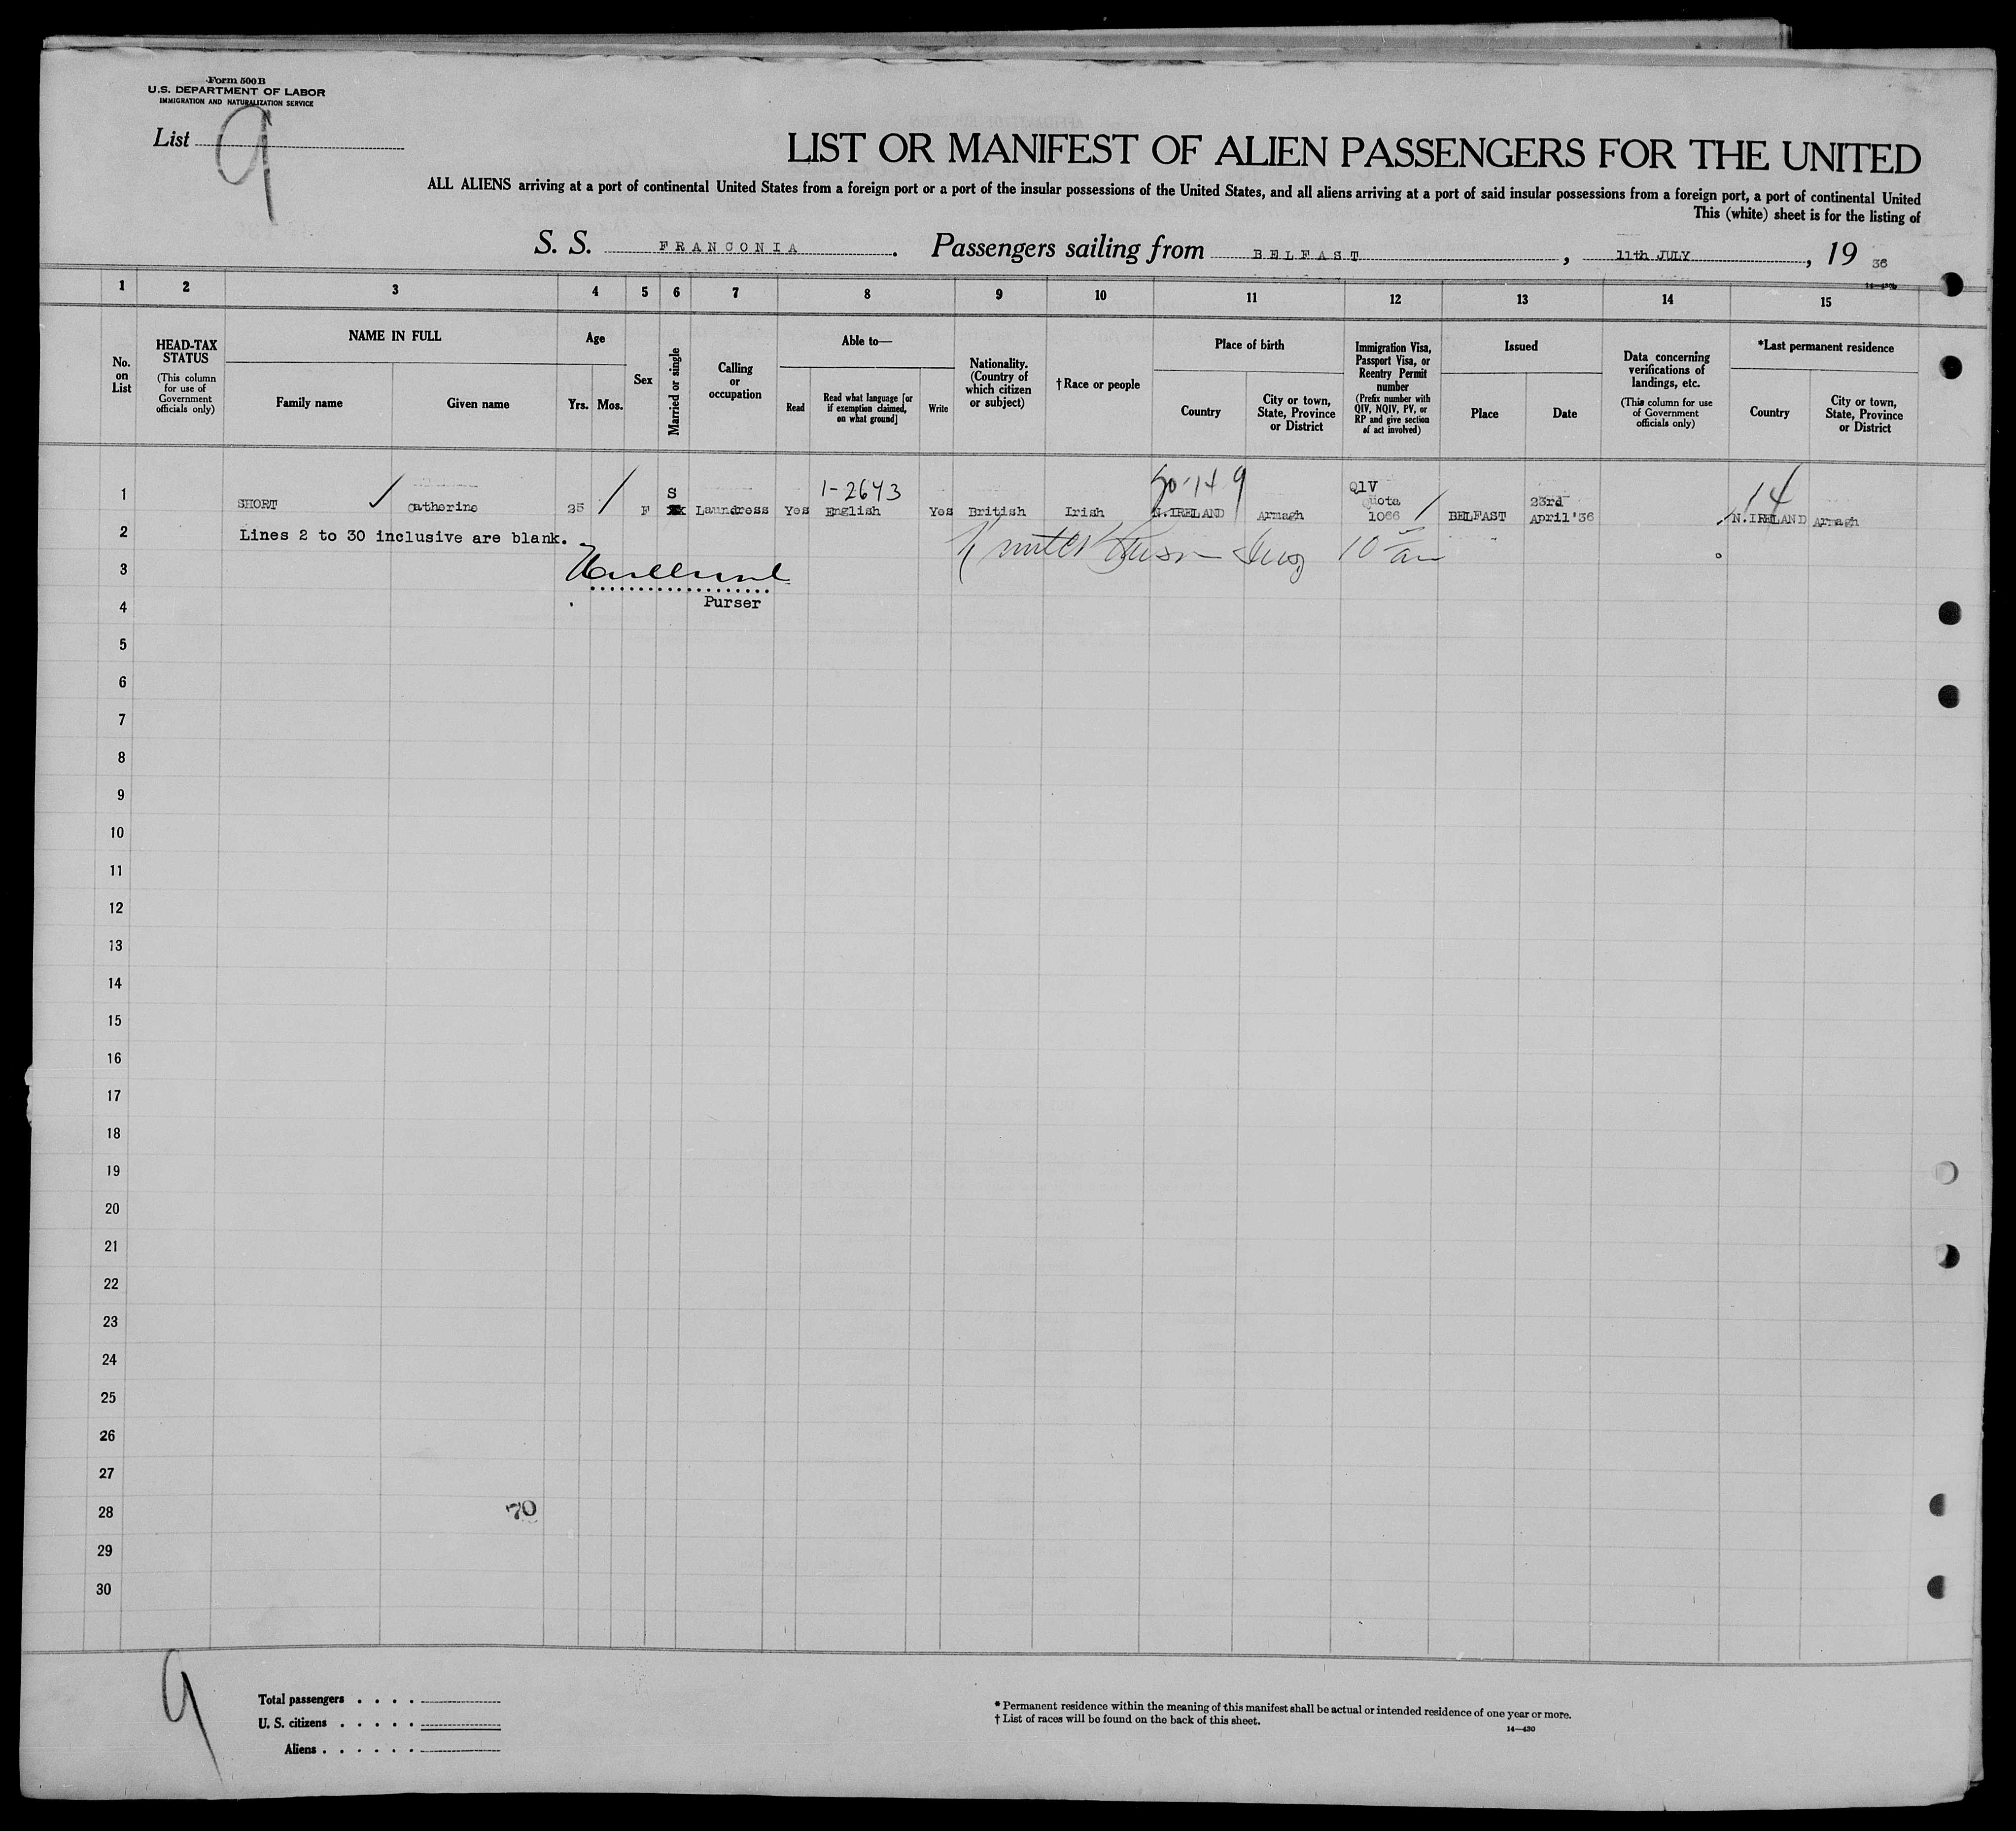 Form 500 B
U.S. DEPARTMENT OF LABOR
IMMIGRATION AND NATURALIZATION SERVICE
List 9
LIST OR MANIFEST OF ALIEN PASSENGERS FOR THE UNITED
ALL ALIENS arriving at a port of continental United States from a foreign port or a port of the insular possessions of the United States, and all aliens arriving at a port of said insular possessions from a foreign port, a port of continental United
This (white) sheet is for the listing of
S. S. FRANCONIA . Passengers sailing from BELFAST , 11th JULY , 19 36
1 2 3 4 5 6 7 8 9 10 11 12 13 14 15
No. on List
HEAD-TAX STATUS
(This column for use of Government officials only)
NAME IN FULL
Family name
Given name
Age
Yrs. Mos.
Sex
Married or single
Calling or occupation
Able to—
Read
Read what language [or if exemption claimed, on what ground]
Write
Nationality. (Country of which citizen or subject)
†Race or people
Place of birth
Country
City or town, State, Province or District
Immigration Visa, Passport Visa, or Reentry Permit number
(Prefix number with QIV, NQIV, PV, or RP and give section of act involved)
Issued
Place
Date
Data concerning verifications of landings, etc.
(This column for use of Government officials only)
*Last permanent residence
Country
City or town, State, Province or District
1-2643
14
1 SHORT Catherine 25 F S Laundress Yes English Yes British Irish N.IRELAND Armagh QIV Quota 1066 BELFAST 23rd April '36 N.IRELAND Armagh
2 Lines 2 to 30 inclusive are blank.
3
4 Purser
5
6
7
8
9
10
11
12
13
14
15
16
17
18
19
20
21
22
23
24
25
26
27
28 70
29
30
9
Total passengers . . . .
U. S. citizens . . . . .
Aliens . . . . . .
* Permanent residence within the meaning of this manifest shall be actual or intended residence of one year or more.
† List of races will be found on the back of this sheet.
14—430